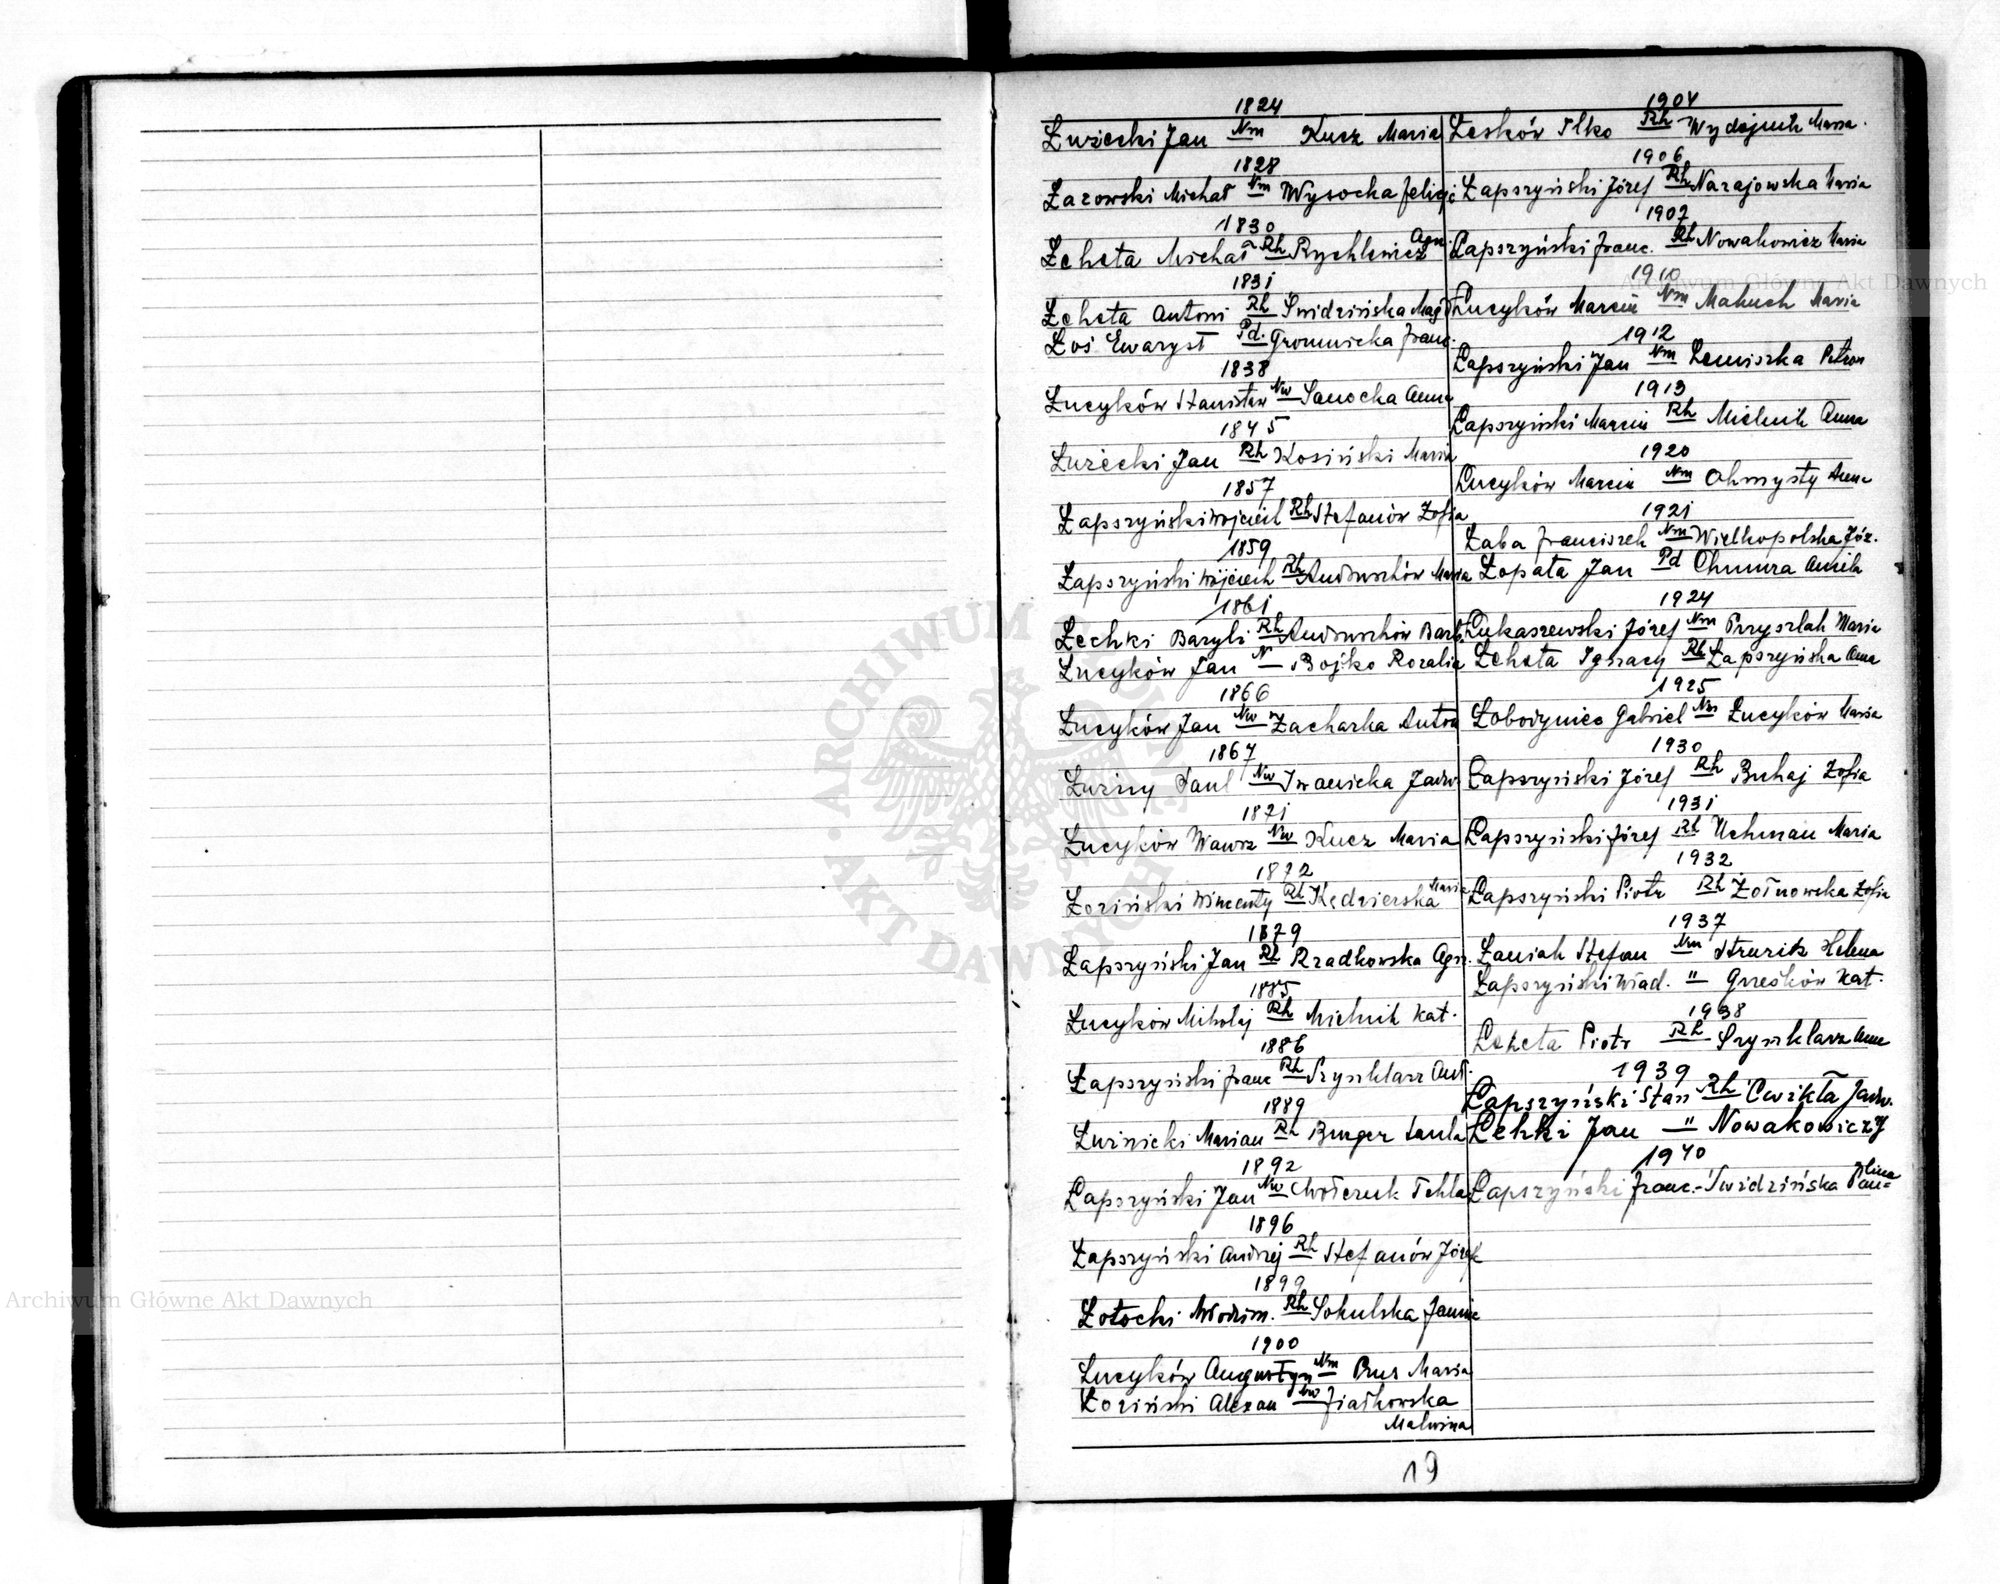 1824
Łużecki Jan Nm Kucz Maria
1828
Łazowski Michał Nm Wysocka Felicj
1830
Łeheta Michał Rh Rychlewicz Agn.
1831
Łeheta Antoni Rh Świdzińska Magd
Łoś Ewaryst Pd. Gromnicka Franc.
1838
Łucyków Stanisław Nw Sanocka Anna
1845
Łużecki Jan Rh Kosiński Maria
1857
Łapszyński Wojciech Rh Stefanów Zofia
1859
Łapszyński Wojciech Rh Andruchów Maria
1861
Łechki Bazyli Rh Andruchów Barb
Łucyków Jan N Bojko Rozalia
1866
Łucyków Jan Nw Zacharka Anton
1867
Łuźny Paul Nw Iwanicka Jadw
1871
Łucyków Wawrz Nw Kucz Maria
1872
Łoziński Wincenty Rh Kędzierska Maria
1879
Łapszyński Jan Rh Rzadkowska Agn.
1885
Łucyków Mikołaj Rh Mielnik Kat.
1886
Łapszyński Franc Rh Szynklarz Ant.
1889
Łuźnicki Marian Rh Burger Paula
1892
Łapszyński Jan Nw Chołczuk Tekla
1896
Łapszyński Andrzej Rh Stefanów Józef
1899
Łotocki Włodzim. Rh Sokulska Janina
1900
Łucyków Augustyn Nm Bus Maria
Łoziński Alexan Nw Fiałkowska
Malwina
1904
Łesków Ilko Rh Maria.
1906
Łapszyński Józef Rh Narajowska Maria
1907
Łapszyński Franc. Rh Nowakowicz Maria
1910
Łucyków Marcin Nm Makuch Maria
1912
Łapszyński Jan Nm Łemiszka Petron
1913
Łapszyński Marcin Rh Mielnik Anna
1920
Łucyków Marcin Nm Ohmysty Anna
1921
Łaba Franciszek Nm Wielkopolska Józ.
Łopata Jan Pd Chmura Aniela
1924
Łukaszewski Józef Nm Przyszlak Maria
Łeheta Ignacy Rh Łapszyńska Anna
1925
Łobodyniec Gabriel Nm Łucyków Maria
1930
Łapszyński Józef Rh Buhaj Zofia
1931
Łapszyński Józef Rh Uchman Maria
1932
Łapszyński Piotr Rh Żołnowska Zofia
1937
Łaniak Stefan Nm Helena
Łapszyński Wład. " Grześków Kat.
1938
Łeheta Piotr Rh Szynklarz Anna
1939
Łapszyński Stan Rh Ćwikła Jadw.
Łehki Jan " Nowakowiczy
1940
Łapszyński Franc.-Świdzińska Paulina
19
Archiwum Główne Akt Dawnych
Archiwum Główne Akt Dawnych
ARCHIWUM GŁÓWNE AKT DAWNYCH